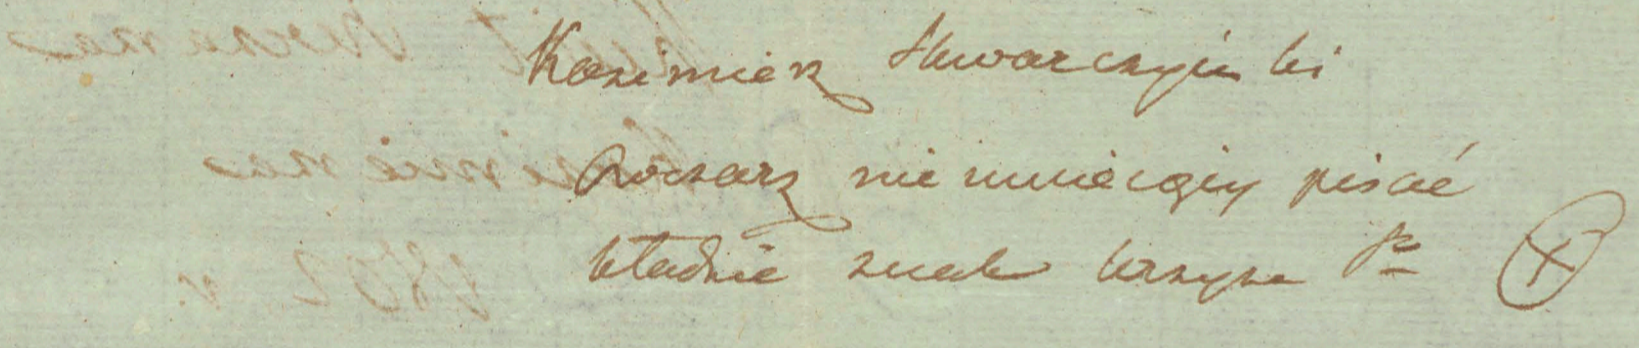 Kazimierz Skwarczyński
owczarz nie umieiący pisać
kładzie znak krzyża